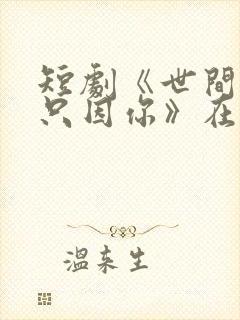 短劇《世間
只因你》在
溫来生